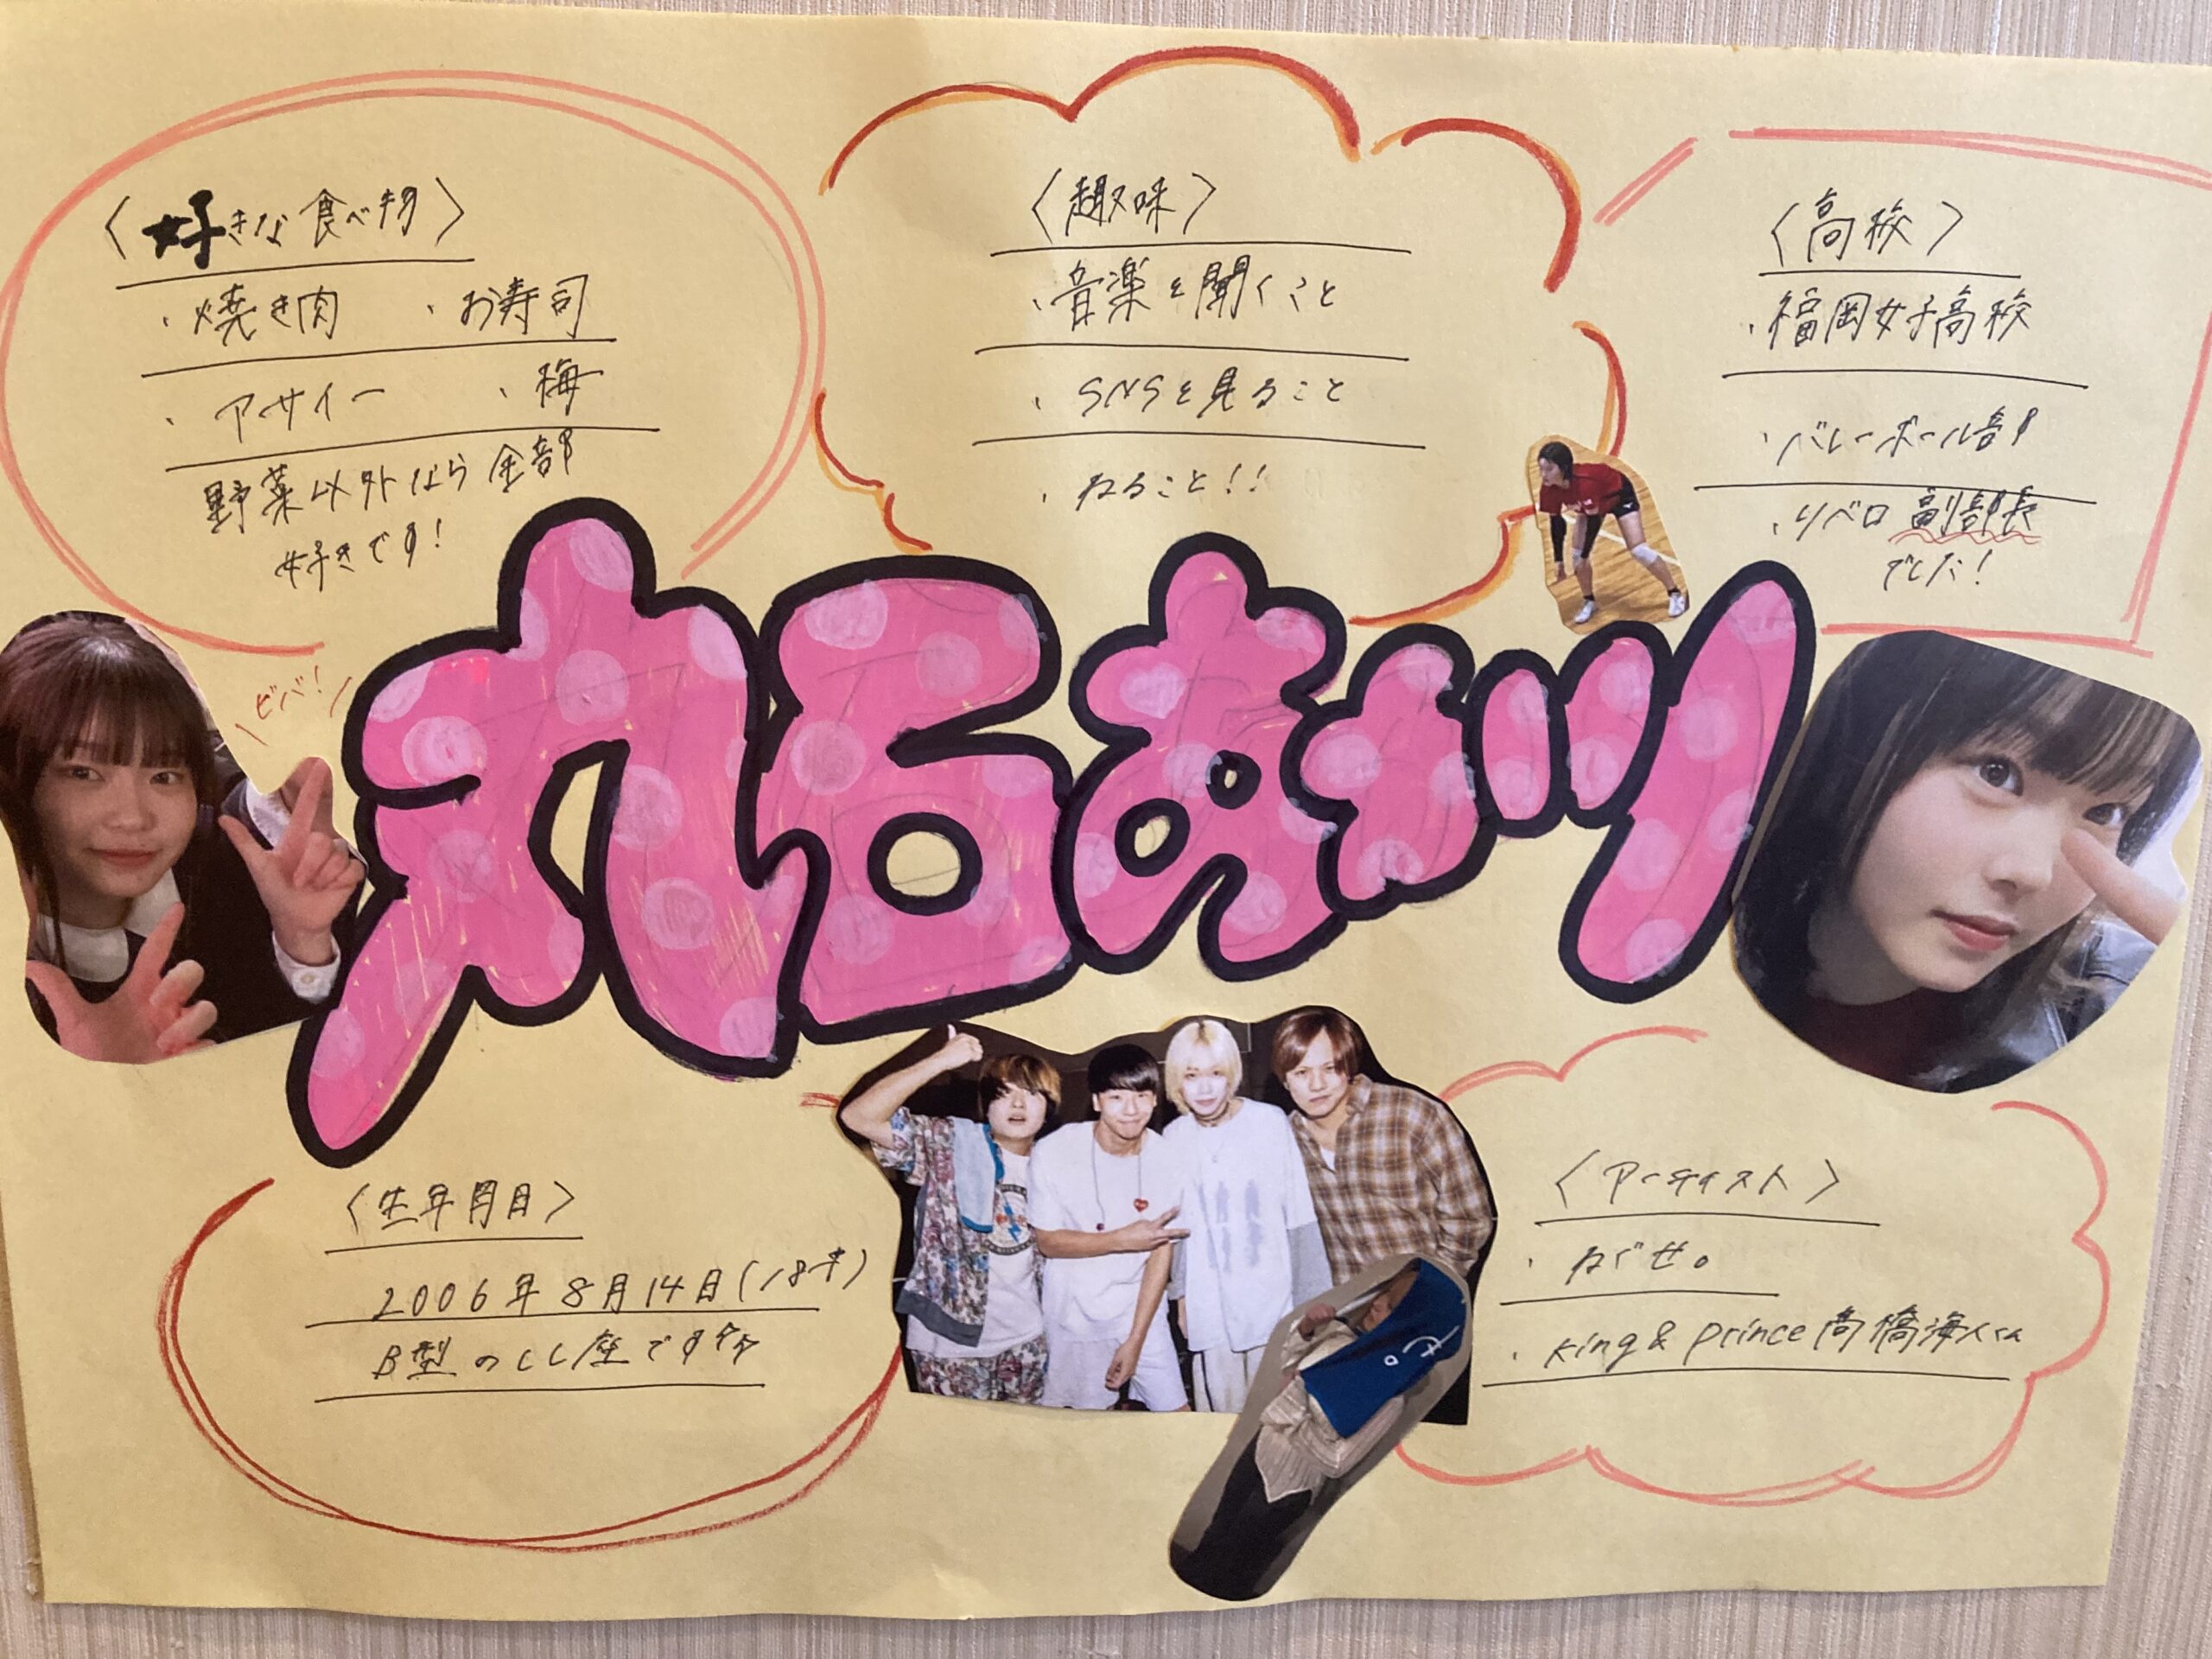 〈好きな食べ物〉
・焼き肉 ・お寿司
・アサイー ・梅
野菜以外なら全部
好きです!
〈趣味〉
・音楽を聞くこと
・SNSを見ること
・ねること!!
〈高校〉
・福岡女子高校
・バレーボール部
・リベロ 副部長
でした!
ビバ!
丸石あかり
〈生年月日〉
2006年8月14日(18才)
B型のしし座です
〈アーティスト〉
・ねぐせ。
・King & prince 高橋海人くん
せ。